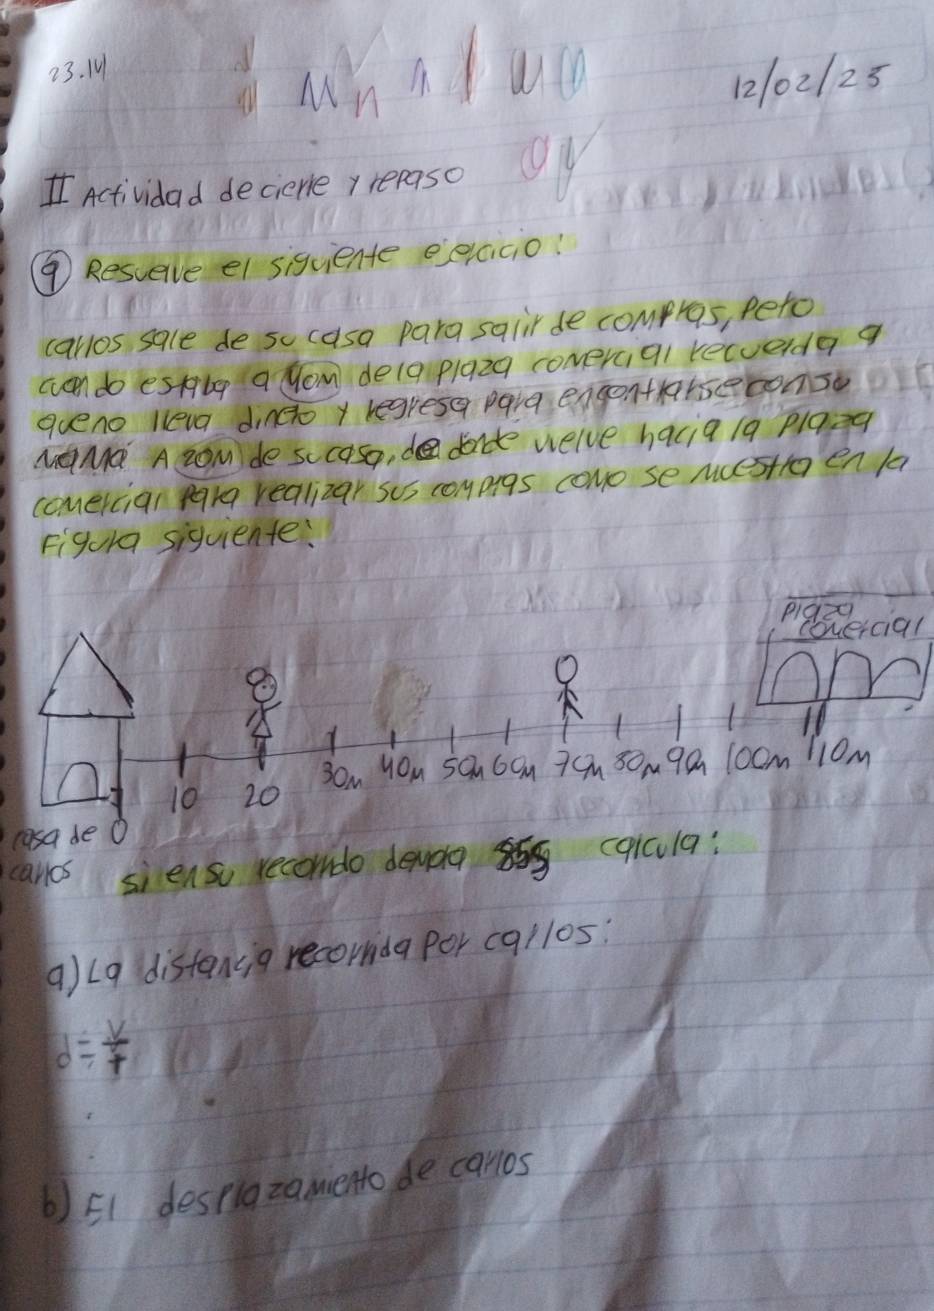 23.14
12/02/25
II Actividad de cierre y repaso
9 Resuelve el siguiente ejercicio:
carlos sale de su casa para salir de compras, pero
cuando estaba a 40m de la plaza comercial recuerda q
que no lleva dinero y regresa para encontrarse con su
mama A 20M de su casa, de donde vuelve hacia la plaza
comercial para realizar sus compras como se muestra en la
Figura siguiente:
Plaza
comercial
10 20 30m 40m 50m 60m 70m 80m 90m 100m 110m
casa de 0
carlos
si en su recorrido demora 85s calcula:
a) La distancia recorrida por carlos:
d = V/t
b) El desplazamiento de carlos